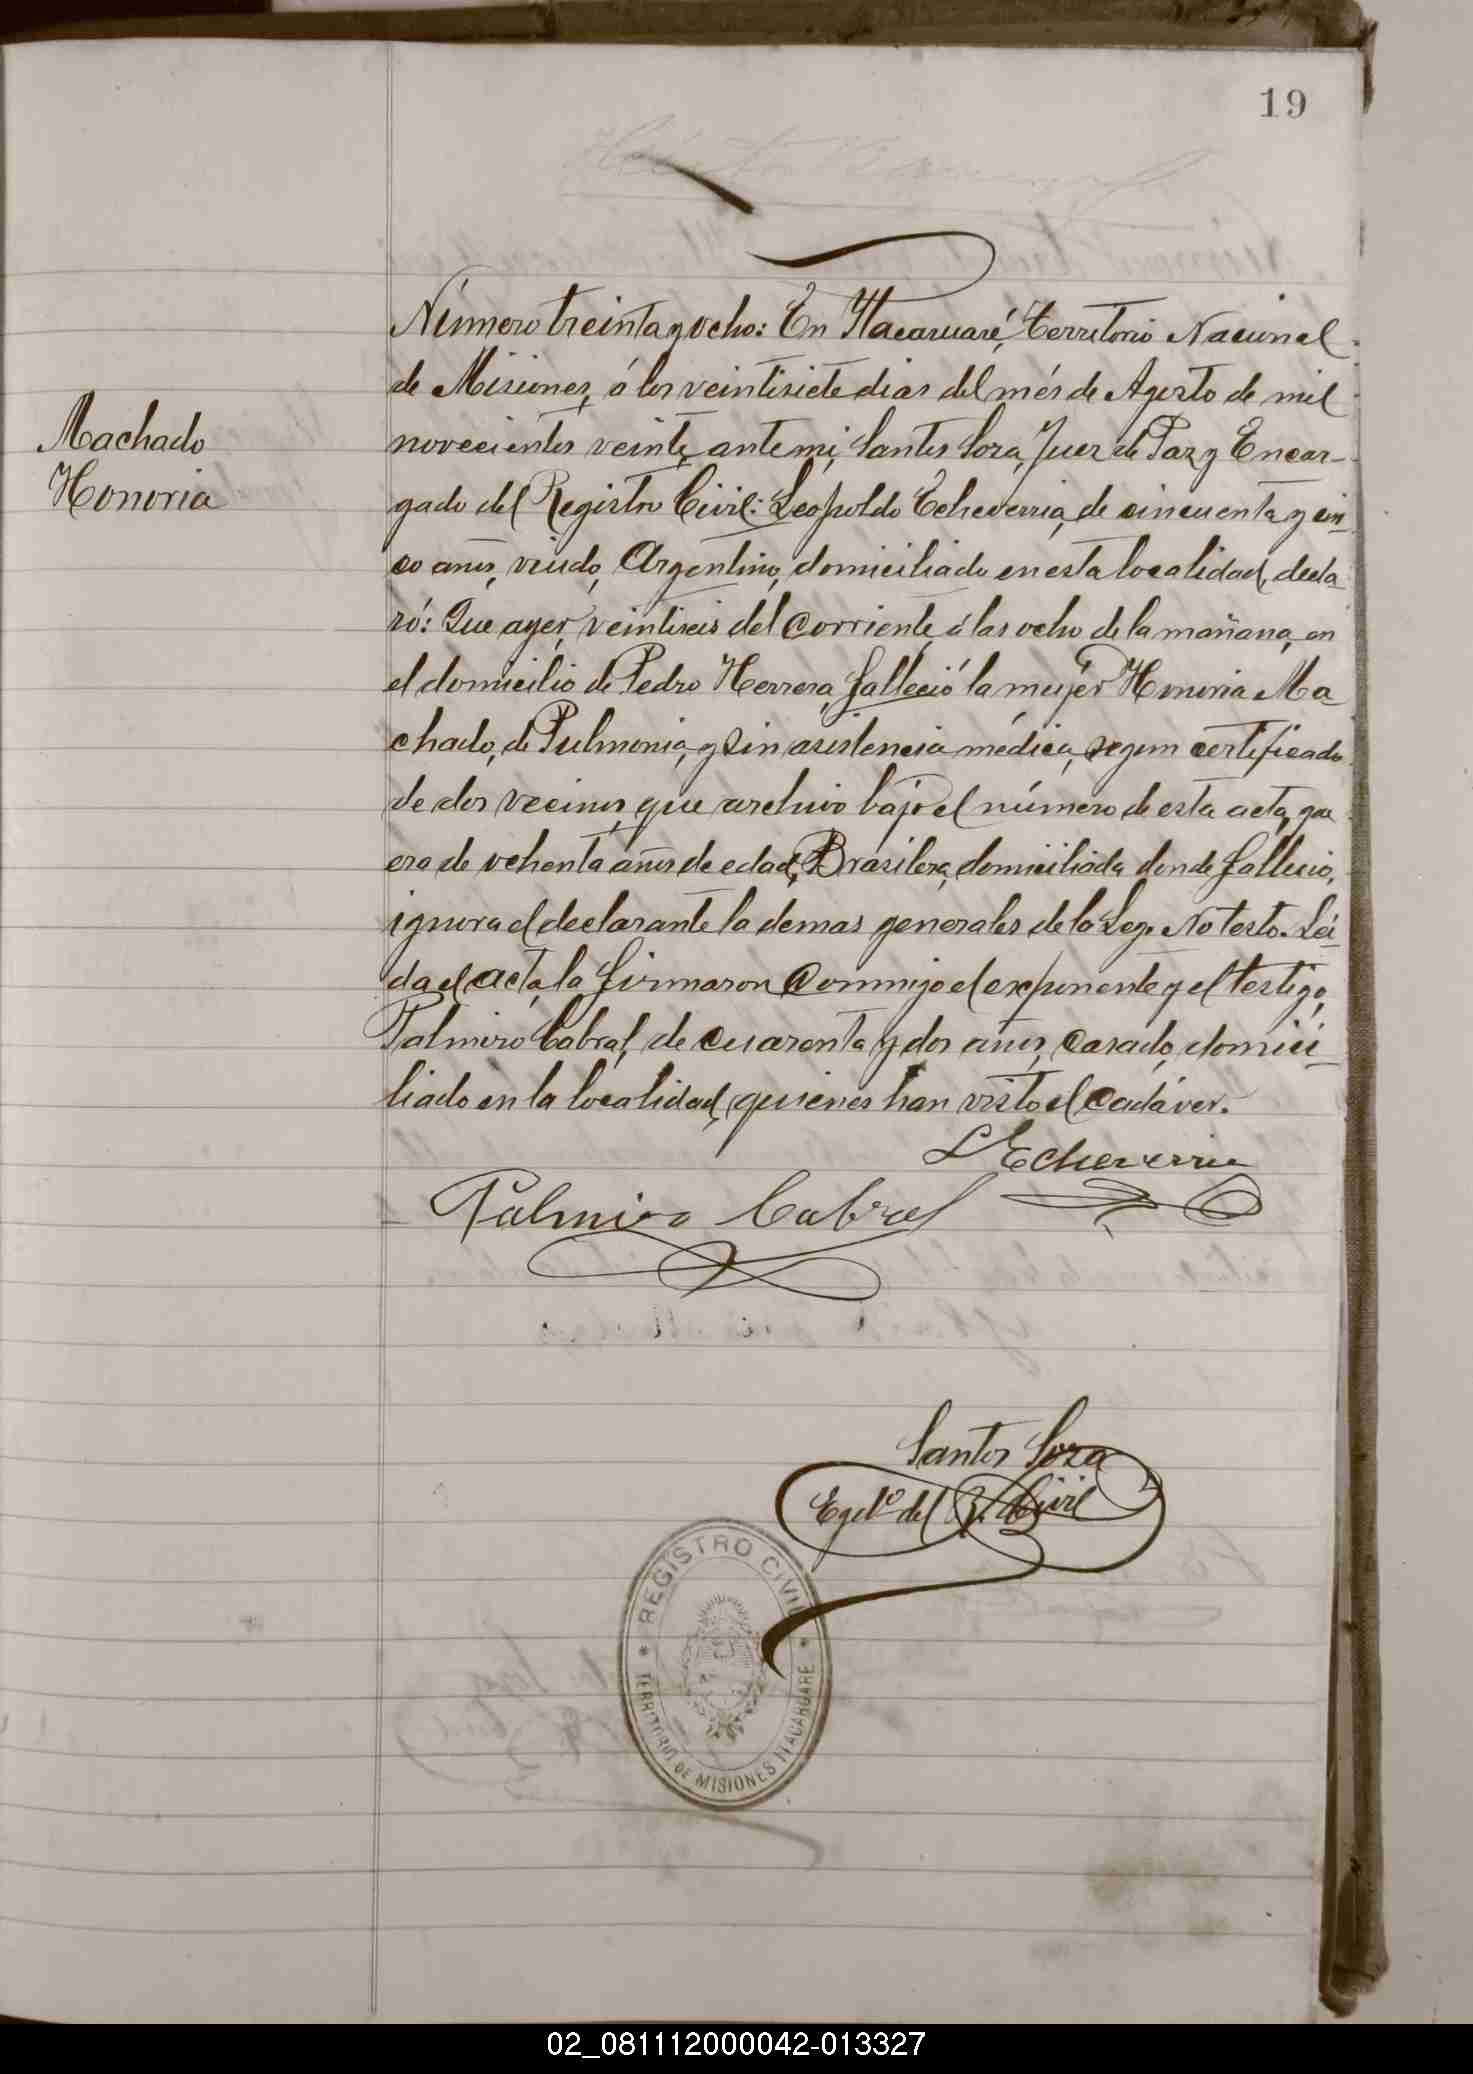 19
Número treinta y ocho: En Itacaruaré, Territorio Nacional
de Misiones, á los veintisiete dias del més de Agosto de mil
Machado
Honoria
novecientos veinte, ante mi, Santos Soza, Juez de Paz y Encar-
gado del Registro Civil: Leopoldo Echeverria, de cincuenta y cin-
co años, viudo, Argentino, domiciliado en esta localidad, decla-
ró: Que ayer, veintiseis del corriente, á las ocho de la mañana, en
el domicilio de Pedro Herrera, falleció la mujer Honoria Ma-
chado, de Pulmonia, y sin asistencia médica, segun certificado
de dos vecinos, que archivo bajo el número de esta acta, que
era de ochenta años de edad, Brasilera, domiciliada donde fallecio,
ignora el declarante la demas generales de la Ley. No testo. Léi-
da el acta, la firmaron conmigo el exponente y el testigo,
Palmiro Cabral, de cuarenta y dos años, casado, domici-
liado en la localidad, quienes han visto el cadáver.
L Echeverria
Palmiro Cabral
Santos Soza
Egdo. del R. Civil
REGISTRO CIVIL
TERRITORIO DE MISIONES ITACARUARE
02_081112000042-013327